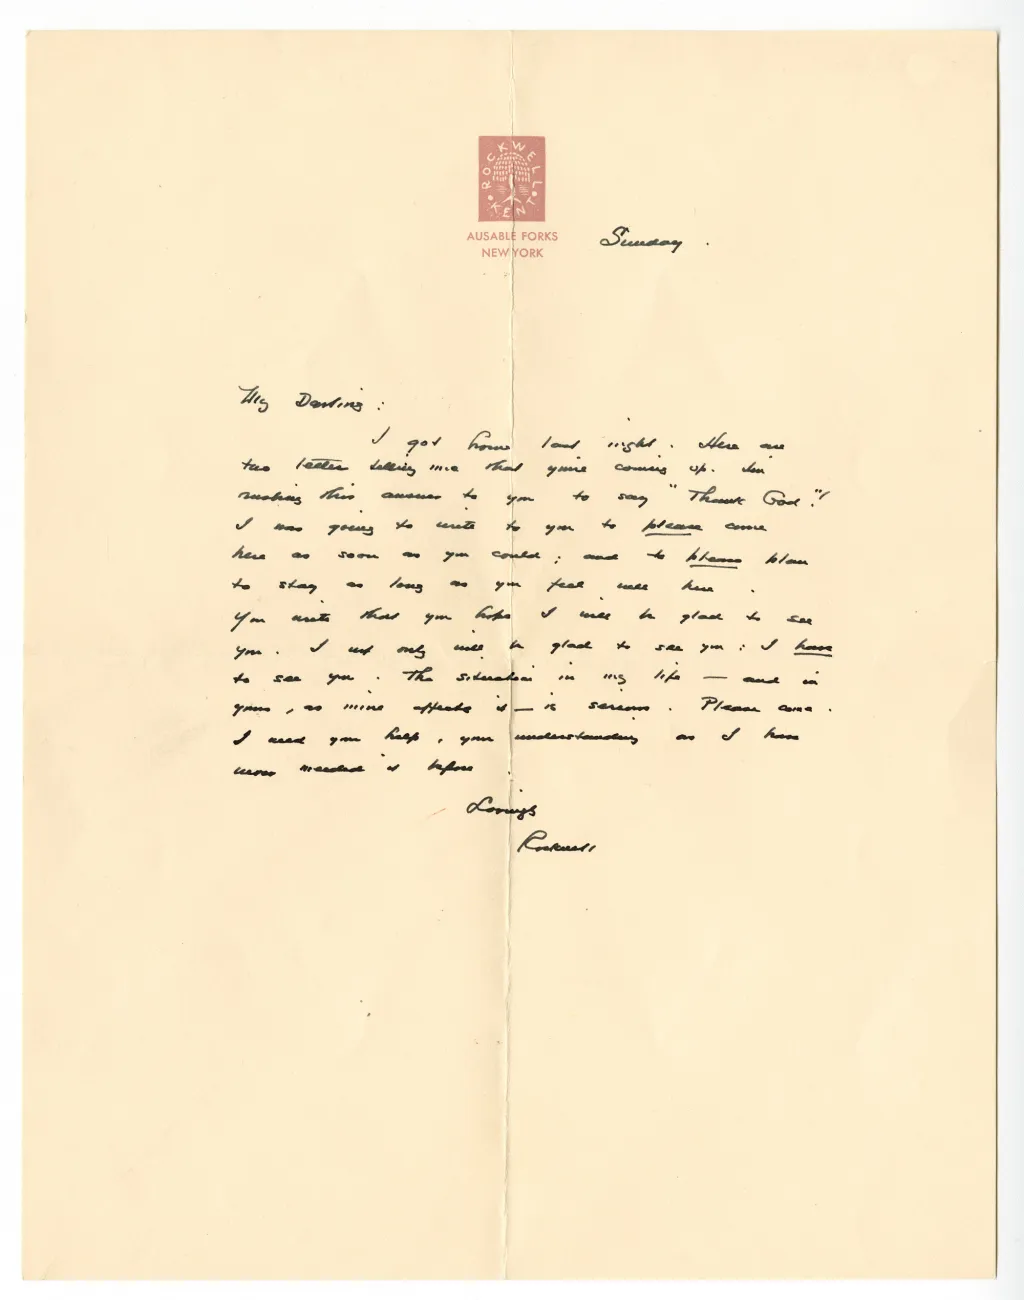 ROCKWELL
KENT
AUSABLE FORKS
NEW YORK
Sunday.
My Darling:
I got home last night. Here are
two letters telling me that you're coming up. I'm
rushing this answer to you to say "Thank God"!
I was going to write to you to please come
here as soon as you could; and to please plan
to stay as long as you feel well here.
You write that you hope I will be glad to see
you. I not only will be glad to see you: I have
to see you. The situation in my life — and in
yours, as mine affects it — is serious. Please come.
I need your help, your understanding as I have
never needed it before.
Lovingly
Rockwell